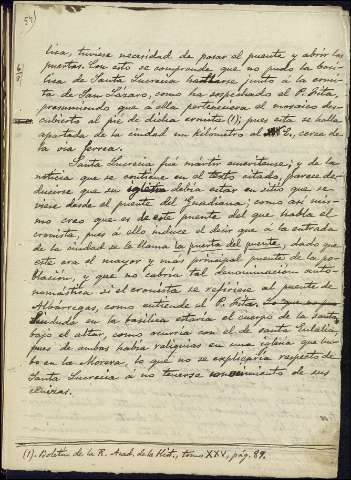 54)
lica, tuviese necesidad de pasar el puente y abrir las
puertas. Con esto se comprende que no pudo la basí-
lica de Santa Lucrecia hallarse junto á la ermi-
ta de San Lázaro, como ha sospechado el P. Fita,
presumiendo que á ella perteneciera el mosaico des-
cubierto al pié de dicha ermita (1); pues esta se halla
apartada de la ciudad un kilómetro al E., cerca de
la via ferrea.
Santa Lucrecia fué martir emeritense; y de la
noticia que se contiene en el texto citado, parece de-
ducirse que su iglesia debía estar en sitio que se
viese desde el puente del Guadiana; como asi mis-
mo creo que es de este puente del que habla el
cronista, pues á ello induce el decir que á la entrada
de la ciudad se le llama la puerta del puente, dado que
este era el mayor y más principal puente de la po-
blación, y que no cabría tal denominación anto-
nomástica si el cronista se refiriese al puente de
Albarregas, como entiende el P. Fita.
en la basílica estaría el cuerpo de la santa
bajo el altar, como ocurría con el de santa Eulalia,
pues de ambas había reliquias en una iglesia que hu-
bo en la Morera, lo que no se explicaría respecto de
Santa Lucrecia á no tenerse conocimiento de sus
cenizas.
(1). Boletin de la R. Acad. de la Hist., tomo XXV, pág. 89.